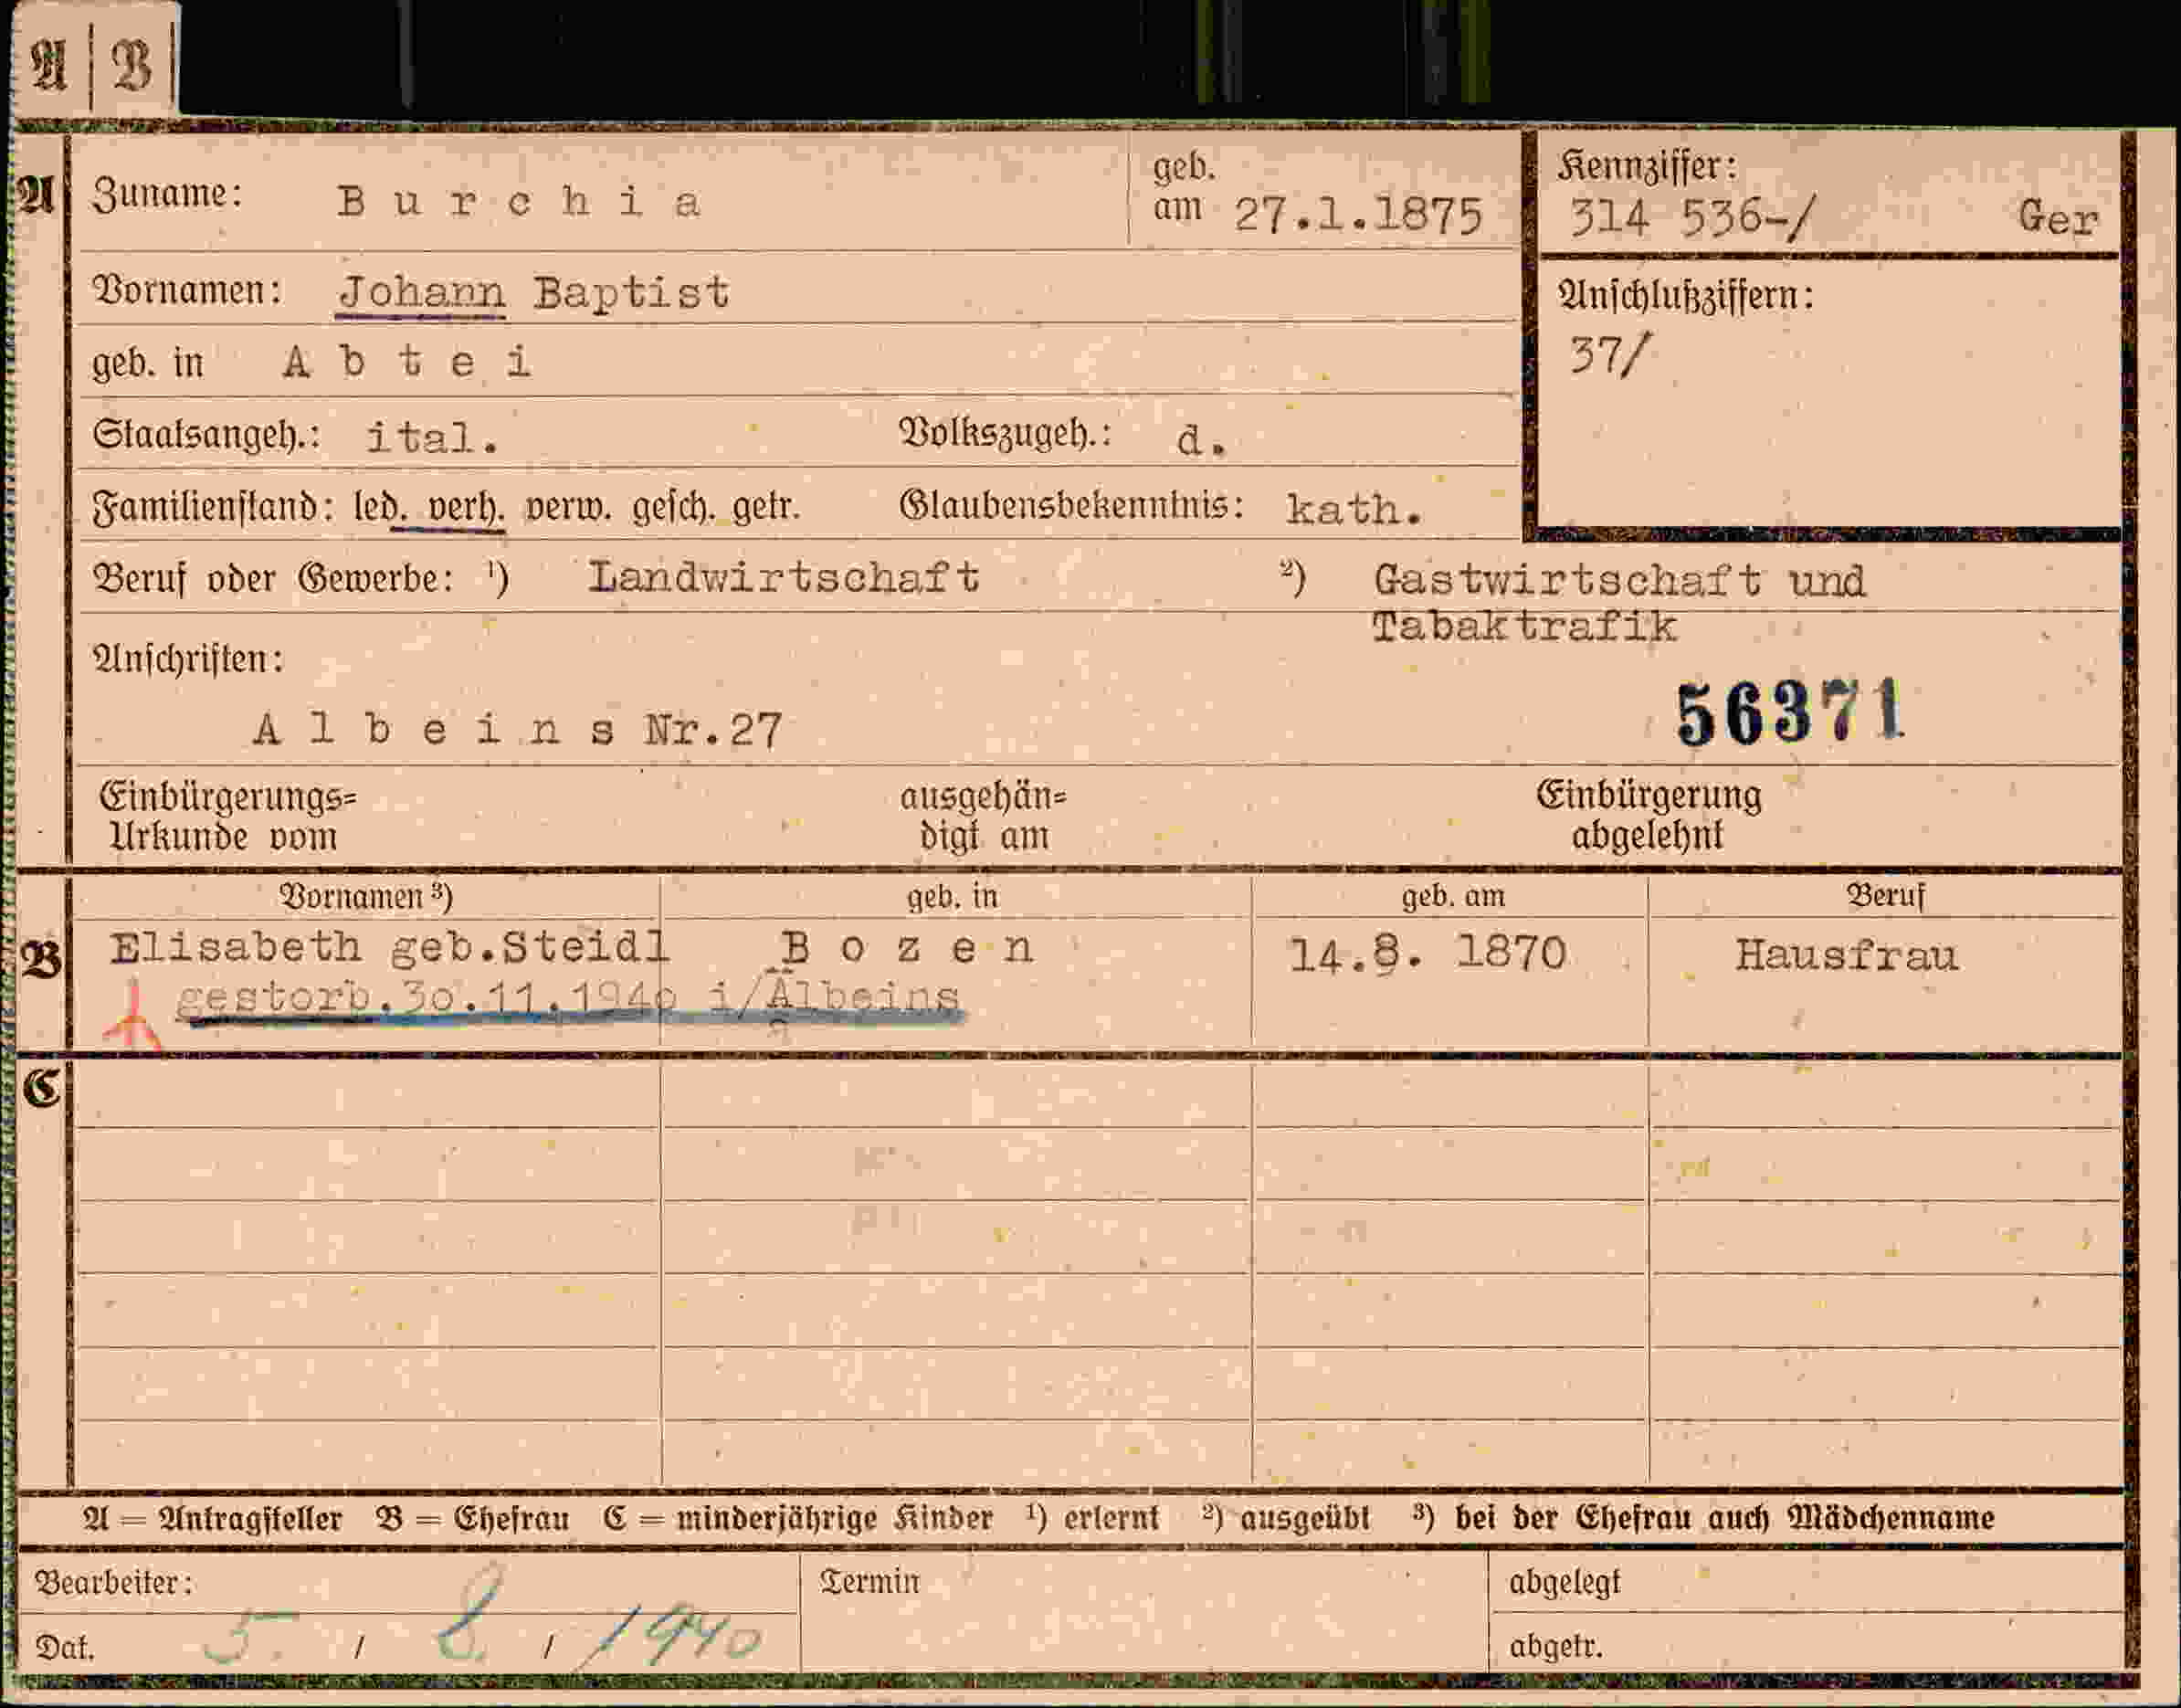 A | B
A Zuname: Burchia geb. am 27.1.1875 Kennziffer: 314 536-/ Ger
Vornamen: Johann Baptist Anschlußziffern:
geb. in Abtei 37/
Staatsangeh.: ital. Volkszugeh.: d.
Familienstand: led. verh. verw. gesch. getr. Glaubensbekenntnis: kath.
Beruf oder Gewerbe: ¹) Landwirtschaft ²) Gastwirtschaft und
Tabaktrafik
Anschriften:
Albeins Nr.27 56371
Einbürgerungs= ausgehän= Einbürgerung
Urkunde vom digt am abgelehnt
Vornamen ³) geb. in geb. am Beruf
B Elisabeth geb.Steidl Bozen 14.8. 1870 Hausfrau
gestorb.30.11.1940 i/Albeins
C
A = Antragsteller B = Ehefrau C = minderjährige Kinder ¹) erlernt ²) ausgeübt ³) bei der Ehefrau auch Mädchenname
Bearbeiter: Termin abgelegt
Dat. 5. / 8. / 1940 abgetr.